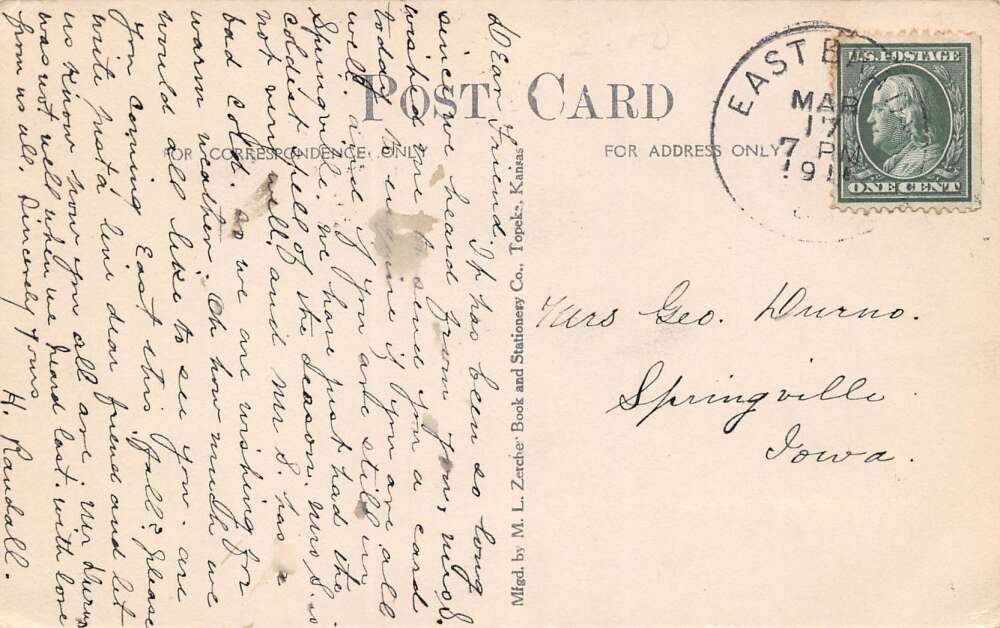 POST CARD
FOR CORRESPONDENCE ONLY
FOR ADDRESS ONLY
EAST
MAR
17
7 PM
191
U.S. POSTAGE
ONE CENT
Mrs Geo. Durno.
Springville
Iowa.
Mfgd. by M. L. Zercher Book and Stationery Co., Topeka, Kansas
Dear Friend. It has been so long
since we heard from you,
wished me to send you a card
today to enquire if you are all
well. and if you are still in
Springville. we have just had the
coldest spell of the season. Mrs S. is
not very well. and Mr S. has a
bad cold. so we are wishing for
warm weather. Oh how much we
would all like to see you. are
you coming East this fall? Please
write just a line dear friend and let
us know how you all are. Mr Durno
was not well when we heard last. with love
from us all. Sincerely Yours
H. Randall.